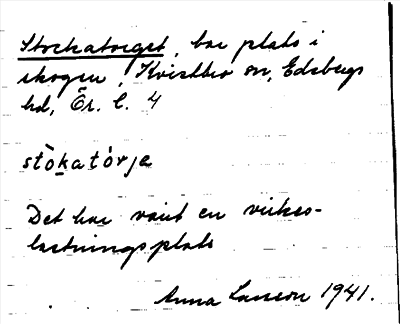 Stockatorget, bar plats i
skogen, Kvistbro sn, Edsbergs
hd, Ör. l. 4
stòkatórja
Det har varit en virkes-
lastningsplats
Anna Larsson 1941.